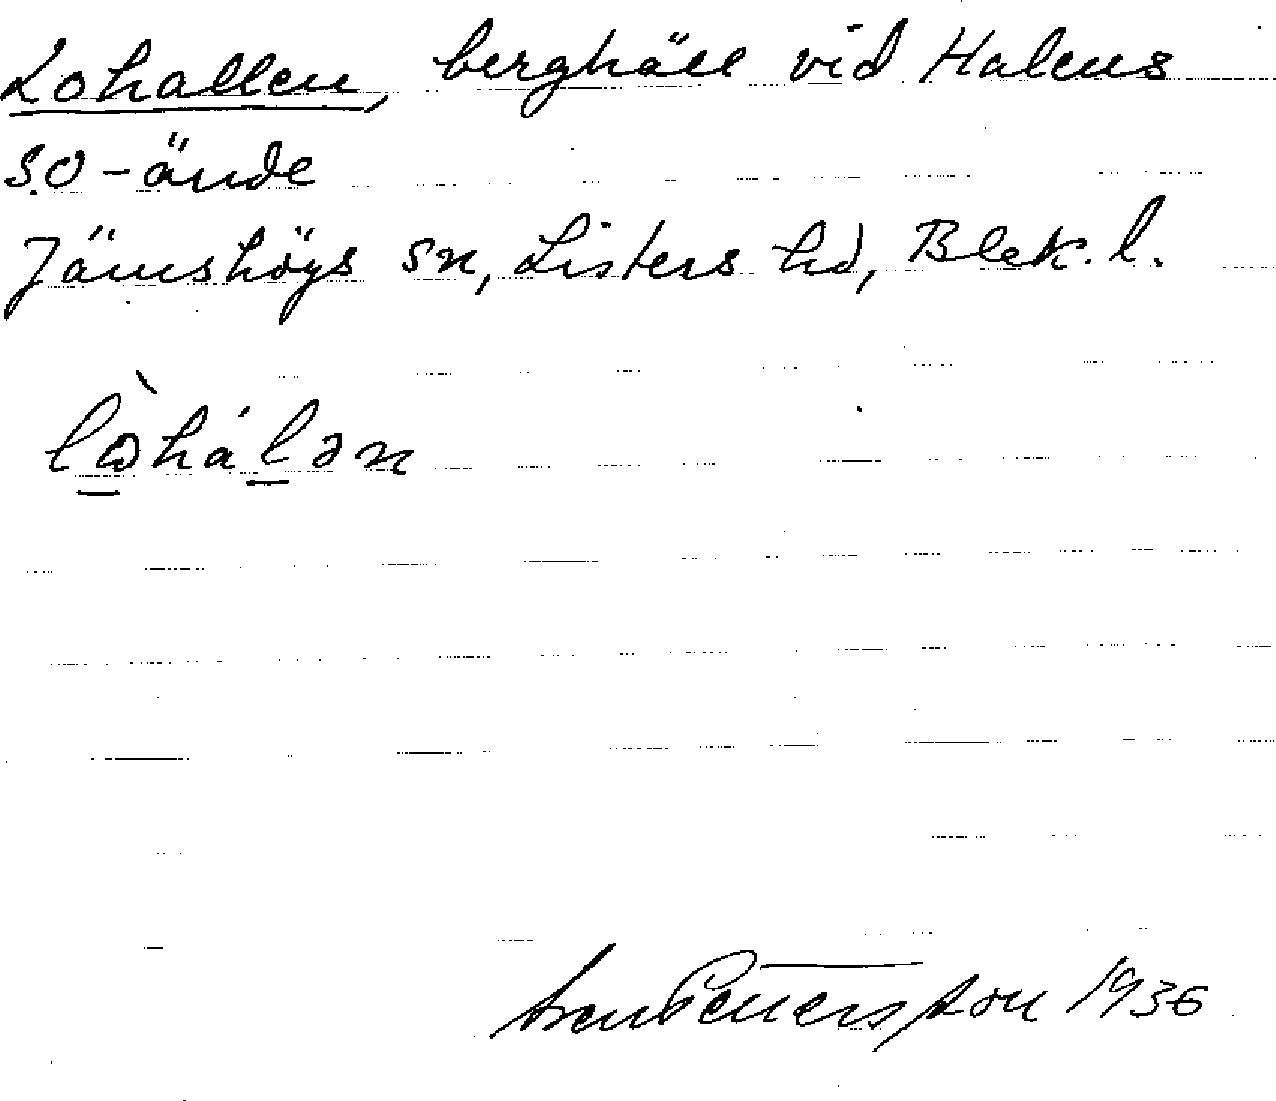 Lohallen, berghäll vid Halens
S.O-ände
Jämshögs sn, Listers hd, Blek. l.
lὼhálən
Pettersson 1936